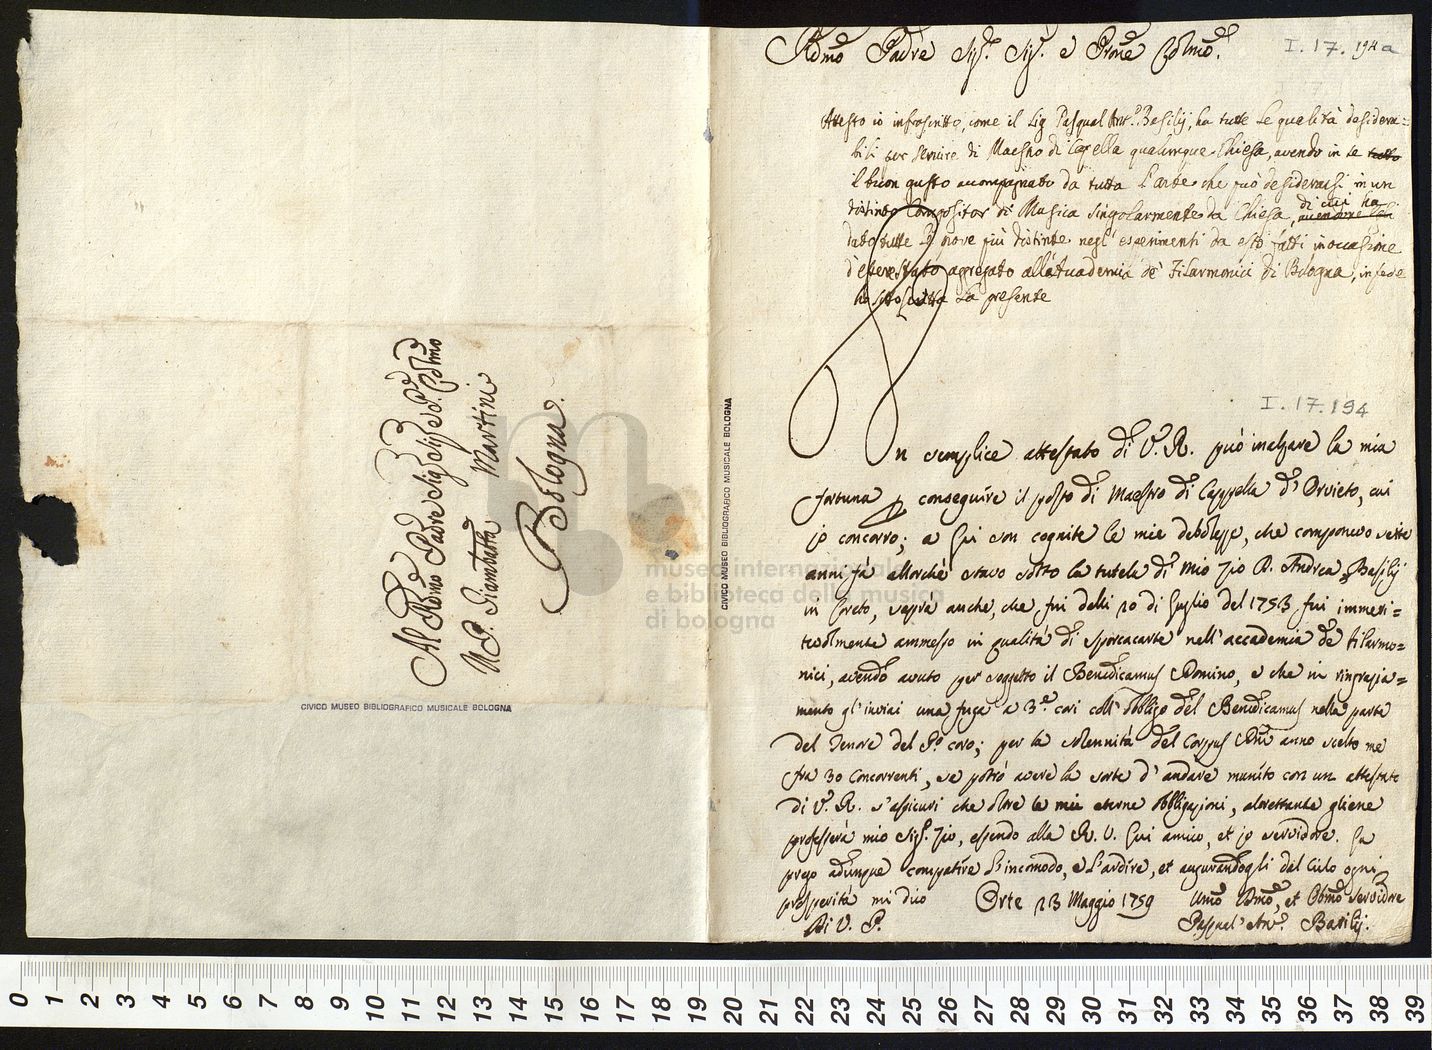 Al Rdmo Padre Sig. Sig. e P.ne Colmo
Il P. Giambatta Martini
Bologna.
CIVICO MUSEO BIBLIOGRAFICO MUSICALE BOLOGNA
CIVICO MUSEO BIBLIOGRAFICO MUSICALE BOLOGNA
museo internazionale
e biblioteca della musica
di bologna
Rdmo Padre Sig.r Sig.r e Prone Colmo.
I. 17. 194a
Attesto io infrascritto, come il Sig Pasqual Ant.o Basilij, ha tutte le qualità desidera=
bili per servire di Maestro di Capella qualunque Chiesa, avendo in se tutto
il buon gusto accompagnato da tutta l'arte che può desiderarsi in un
distinto Compositor di Musica singolarmente da Chiesa, avendone
di cui ha
dato tutte le prove più distinte negl'esperimenti da esso fatti in occasione
d'essere stato aggregato all'Accademia de' Filarmonici di Bologna, in fede
ho sottoscritta la presente
I. 17. 194
Un semplice attestato di V. R. può inalzare la mia
fortuna p conseguire il posto di Maestro di Cappella d'Orvieto, cui
io concorro; a Lui son cognite le mie debolezze, che componevo sette
anni fà allorchè stavo sotto la tutela di mio Zio D. Andrea Basilij
in Loreto, seppe anche, che fui delli 20 di Luglio del 1753 fui immeri=
tevolmente ammesso in qualità di sporcacarte nell'accademia de filarmo=
nici, avendo avuto per soggetto il Benedicamus Domino, e che in ringrazia=
mento gl'inviai una fuga a 3.e cori coll'obbligo del Benedicamus nella parte
del Tenore del P.o coro; per la solennità del Corpus Dni anno scelto me
fra 30 Concorrenti, se potrò avere la sorte d'andare munito con un attestato
di V. R. s'assicuri che oltre le mie eterne obbligazioni, altrettante gliene
professerà mio Sig.r Zio, essendo alla R. V. Lui amico, et io servidore. La
prego adunque compatire l'incomodo, e l'ardire, et augurandogli dal Cielo ogni
prosperità mi dico Orte 23 Maggio 1759
Di V. P.
Umo Dmo, et Obmo Servidore
Pasqual' Ant.o Basilij.
0 1 2 3 4 5 6 7 8 9 10 11 12 13 14 15 16 17 18 19 20 21 22 23 24 25 26 27 28 29 30 31 32 33 34 35 36 37 38 39